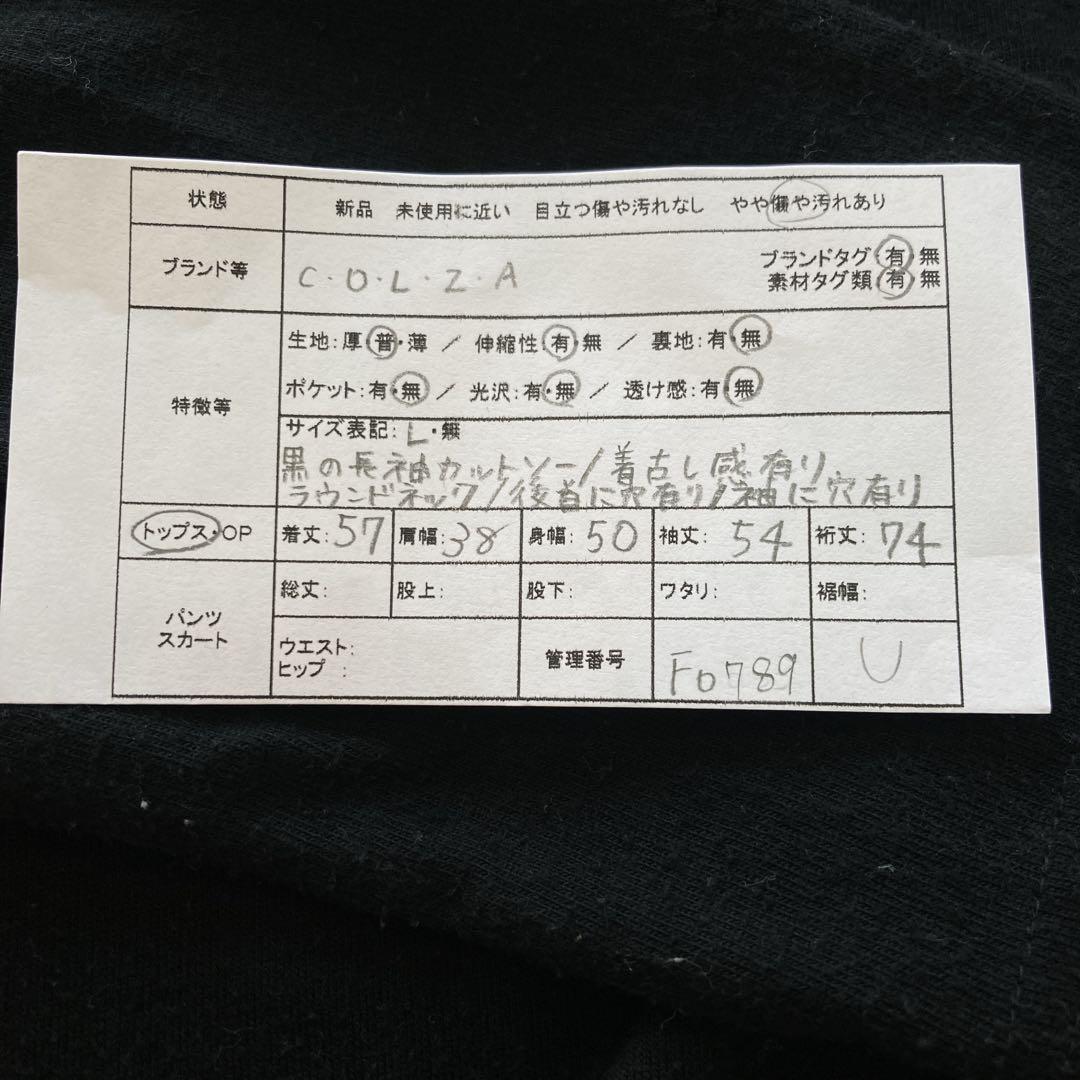 状態 新品 未使用に近い 目立つ傷や汚れなし やや傷や汚れあり
ブランド等 C・O・L・Z・A ブランドタグ 有・無
素材タグ類 有・無
特徴等
生地:厚・普・薄 / 伸縮性:有・無 / 裏地:有・無
ポケット:有・無 / 光沢:有・無 / 透け感:有・無
サイズ表記: L・無
黒の長袖カットソー/着古し感有り
ラウンドネック/後首に穴有り/袖に穴有り
トップス・OP 着丈:57 肩幅:38 身幅:50 袖丈:54 裄丈:74
パンツ
スカート
総丈: 股上: 股下: ワタリ: 裾幅:
ウエスト:
ヒップ :
管理番号 F0789 U